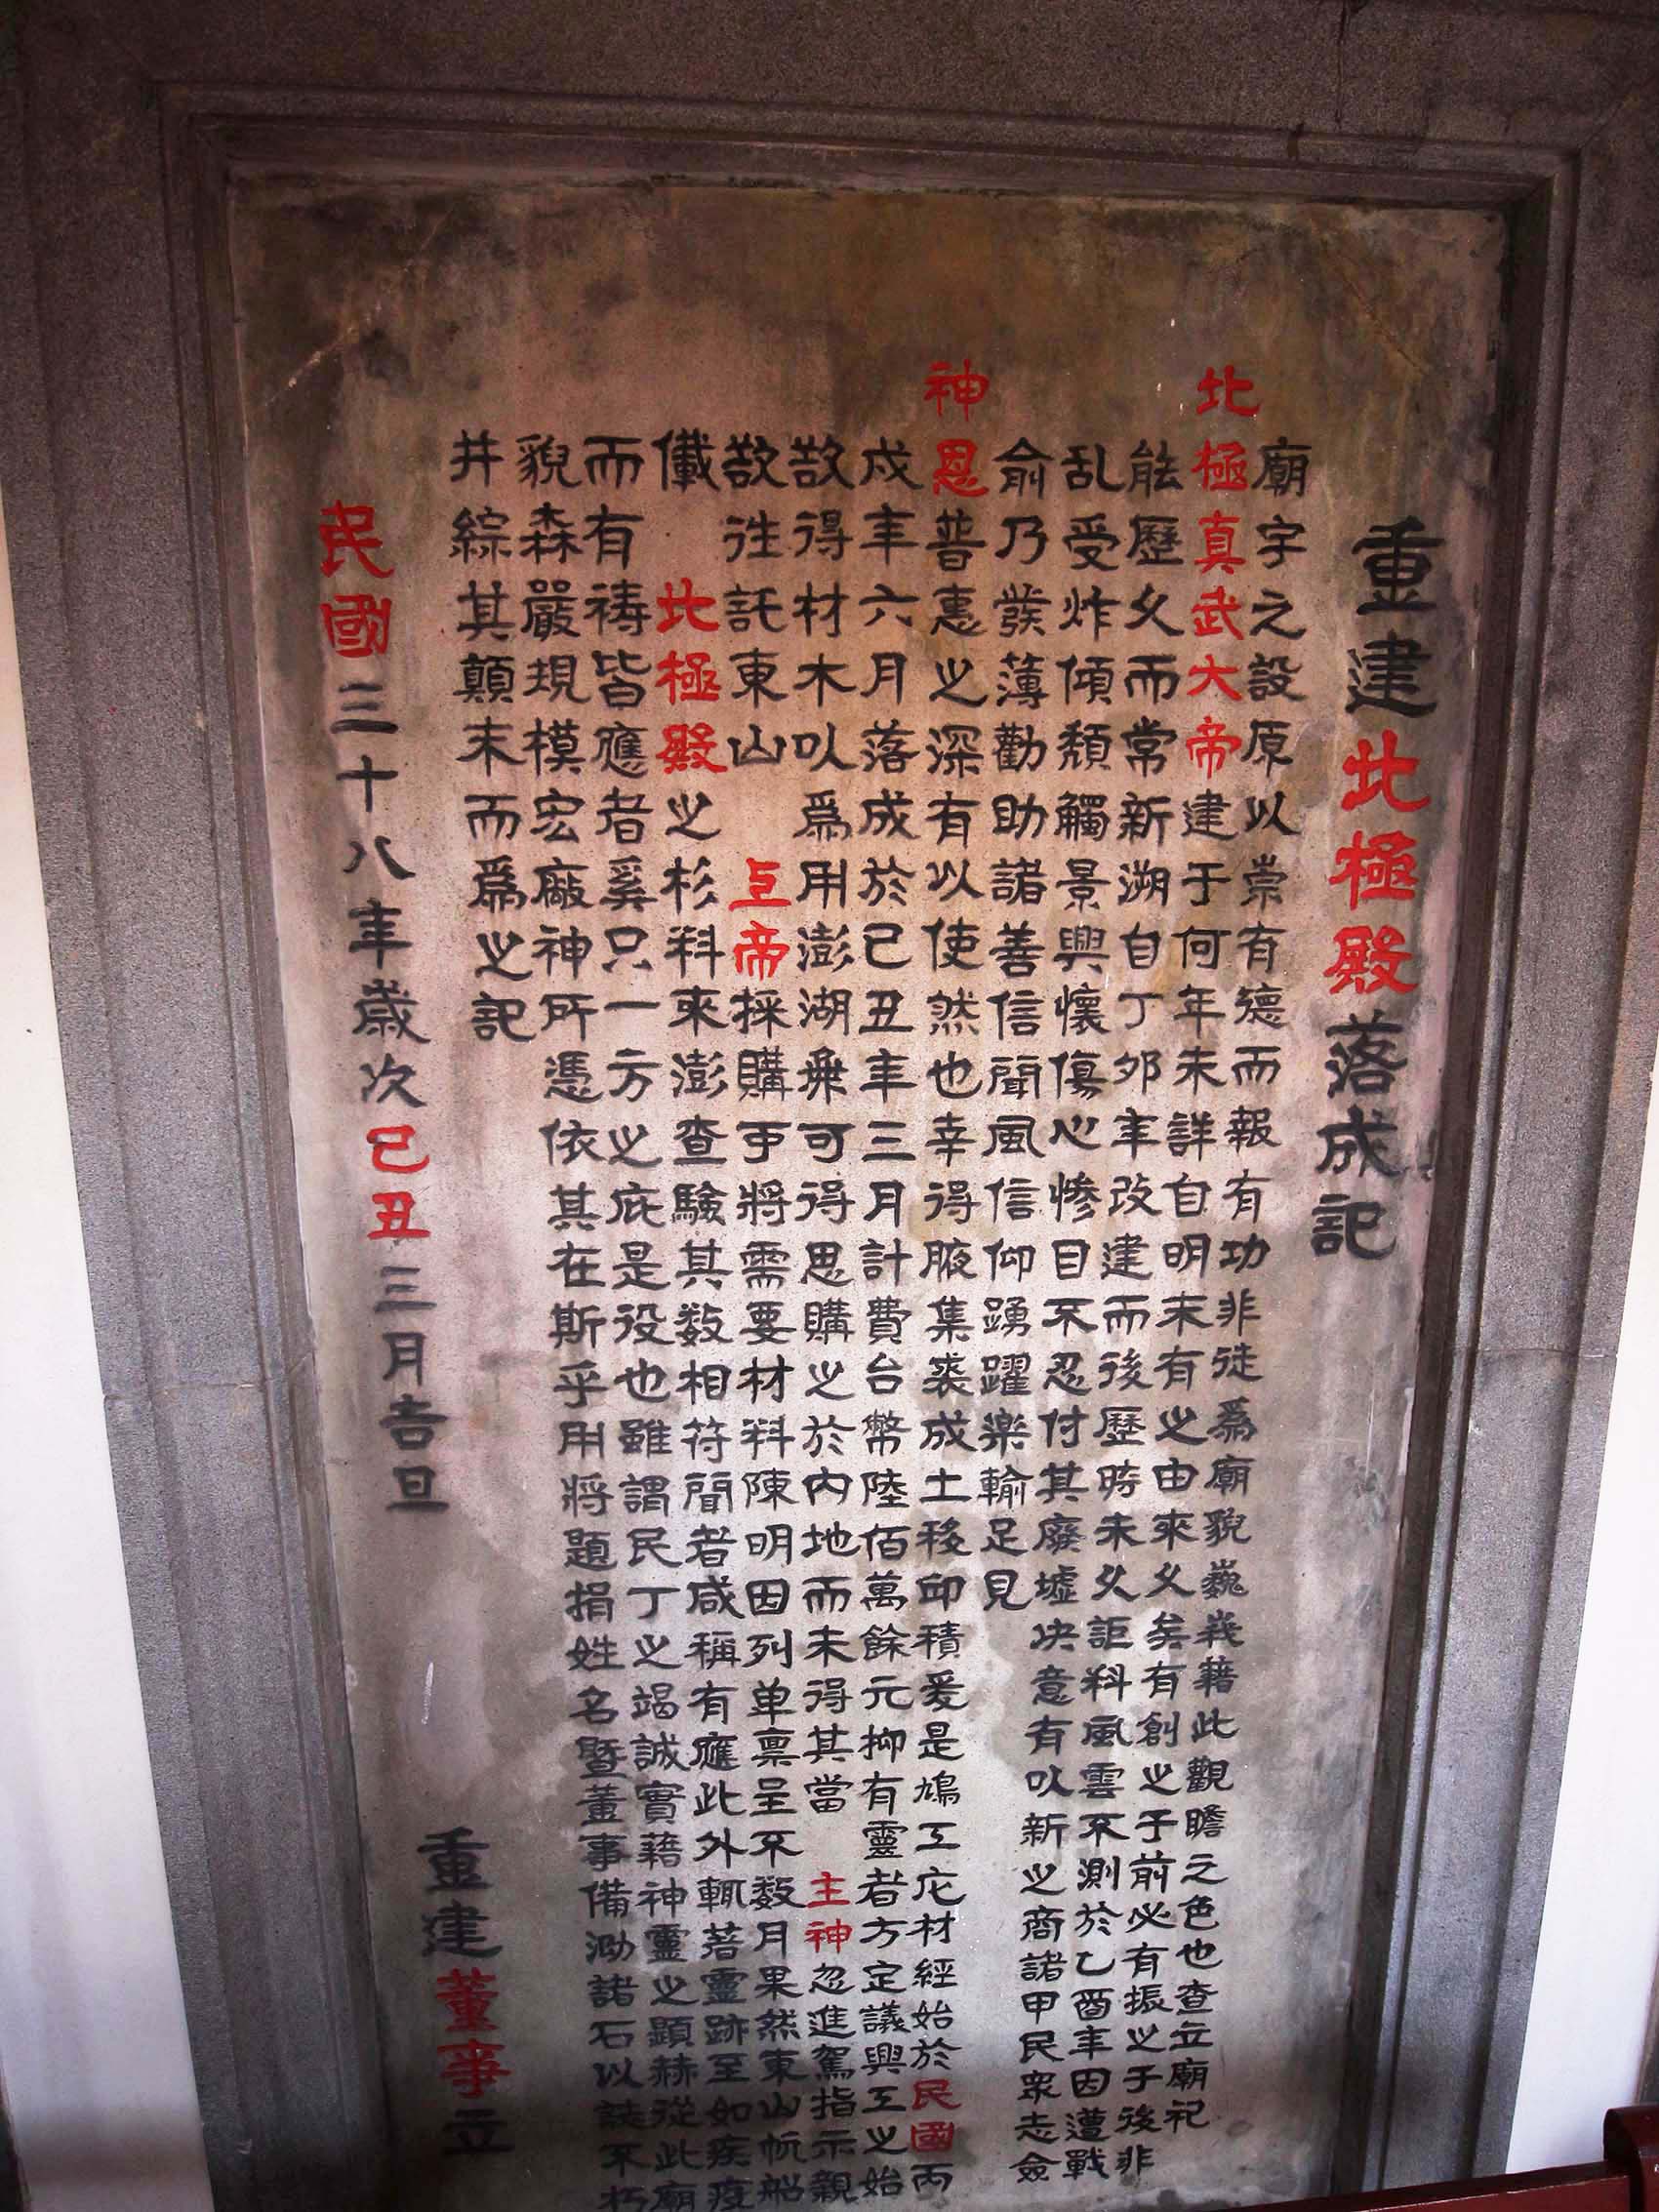 重建北極殿落成記
廟宇之設原以崇有德而報有功非徒爲廟貌巍峩藉此觀瞻之色也查立廟祀
北極真武大帝建于何年未詳自明末有之由來久矣有創之于前必有振之于後非
能歷久而常新溯自丁夘年改建而後歷時未久詎料風雲不測於乙酉年因遭戰
乱受炸傾頹觸景興懷傷心慘目不忍付其廢墟决意有以新之商諸甲民衆志僉
俞乃發薄勸助諸善信聞風信仰踴躍樂輸足見
神恩普惠之深有以使然也幸得腋集裘成土移邱積爰是鳩工庀材經始於民國丙
戍年六月落成於已丑年三月計費台幣陸佰萬餘元抑有靈者方定議興工之始
敨得材木以爲用澎湖乗可得思購之於內地而未得其當主神忽進駕指示親
敨往託東山上帝採購事將需要材料陳明因列单禀呈不数月果然東山帆船
儎北極殿之杉料來澎查驗其数相符聞者咸稱有應此外輒著靈跡至如疾疫
而有祷皆應者奚只一方之庇是役也雖謂民丁之竭誠實藉神靈之顯赫從此廟
貌森嚴規模宏厰神所憑依其在斯乎用將題捐姓名暨董事備泐諸石以誌不朽
并綜其顛末而爲之記
民國三十八年歲次己丑三月吉旦
重建董事立